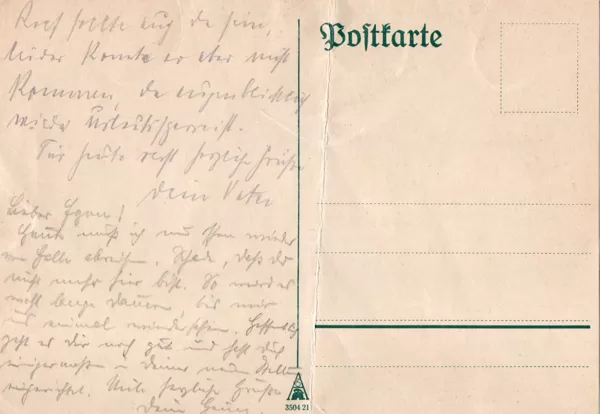 Rolf sollte auch da sein,
leider konnte er aber nicht
kommen, da augenblicklich
wieder Urlaubssperre ist.
Für heute recht herzliche Grüße
Dein Vater
Lieber Egon!
Heute muß ich nun schon wieder
von Halle abreisen. Schade, daß du
nicht mehr hier bist. So wird es
wohl lange dauern, bis wir
uns einmal wiedersehen. Hoffentlich
geht es dir noch gut und hast dich
einigermaßen in deiner neuen Stelle
eingerichtet. Viele herzliche Grüße
Dein
Postkarte
3504 21